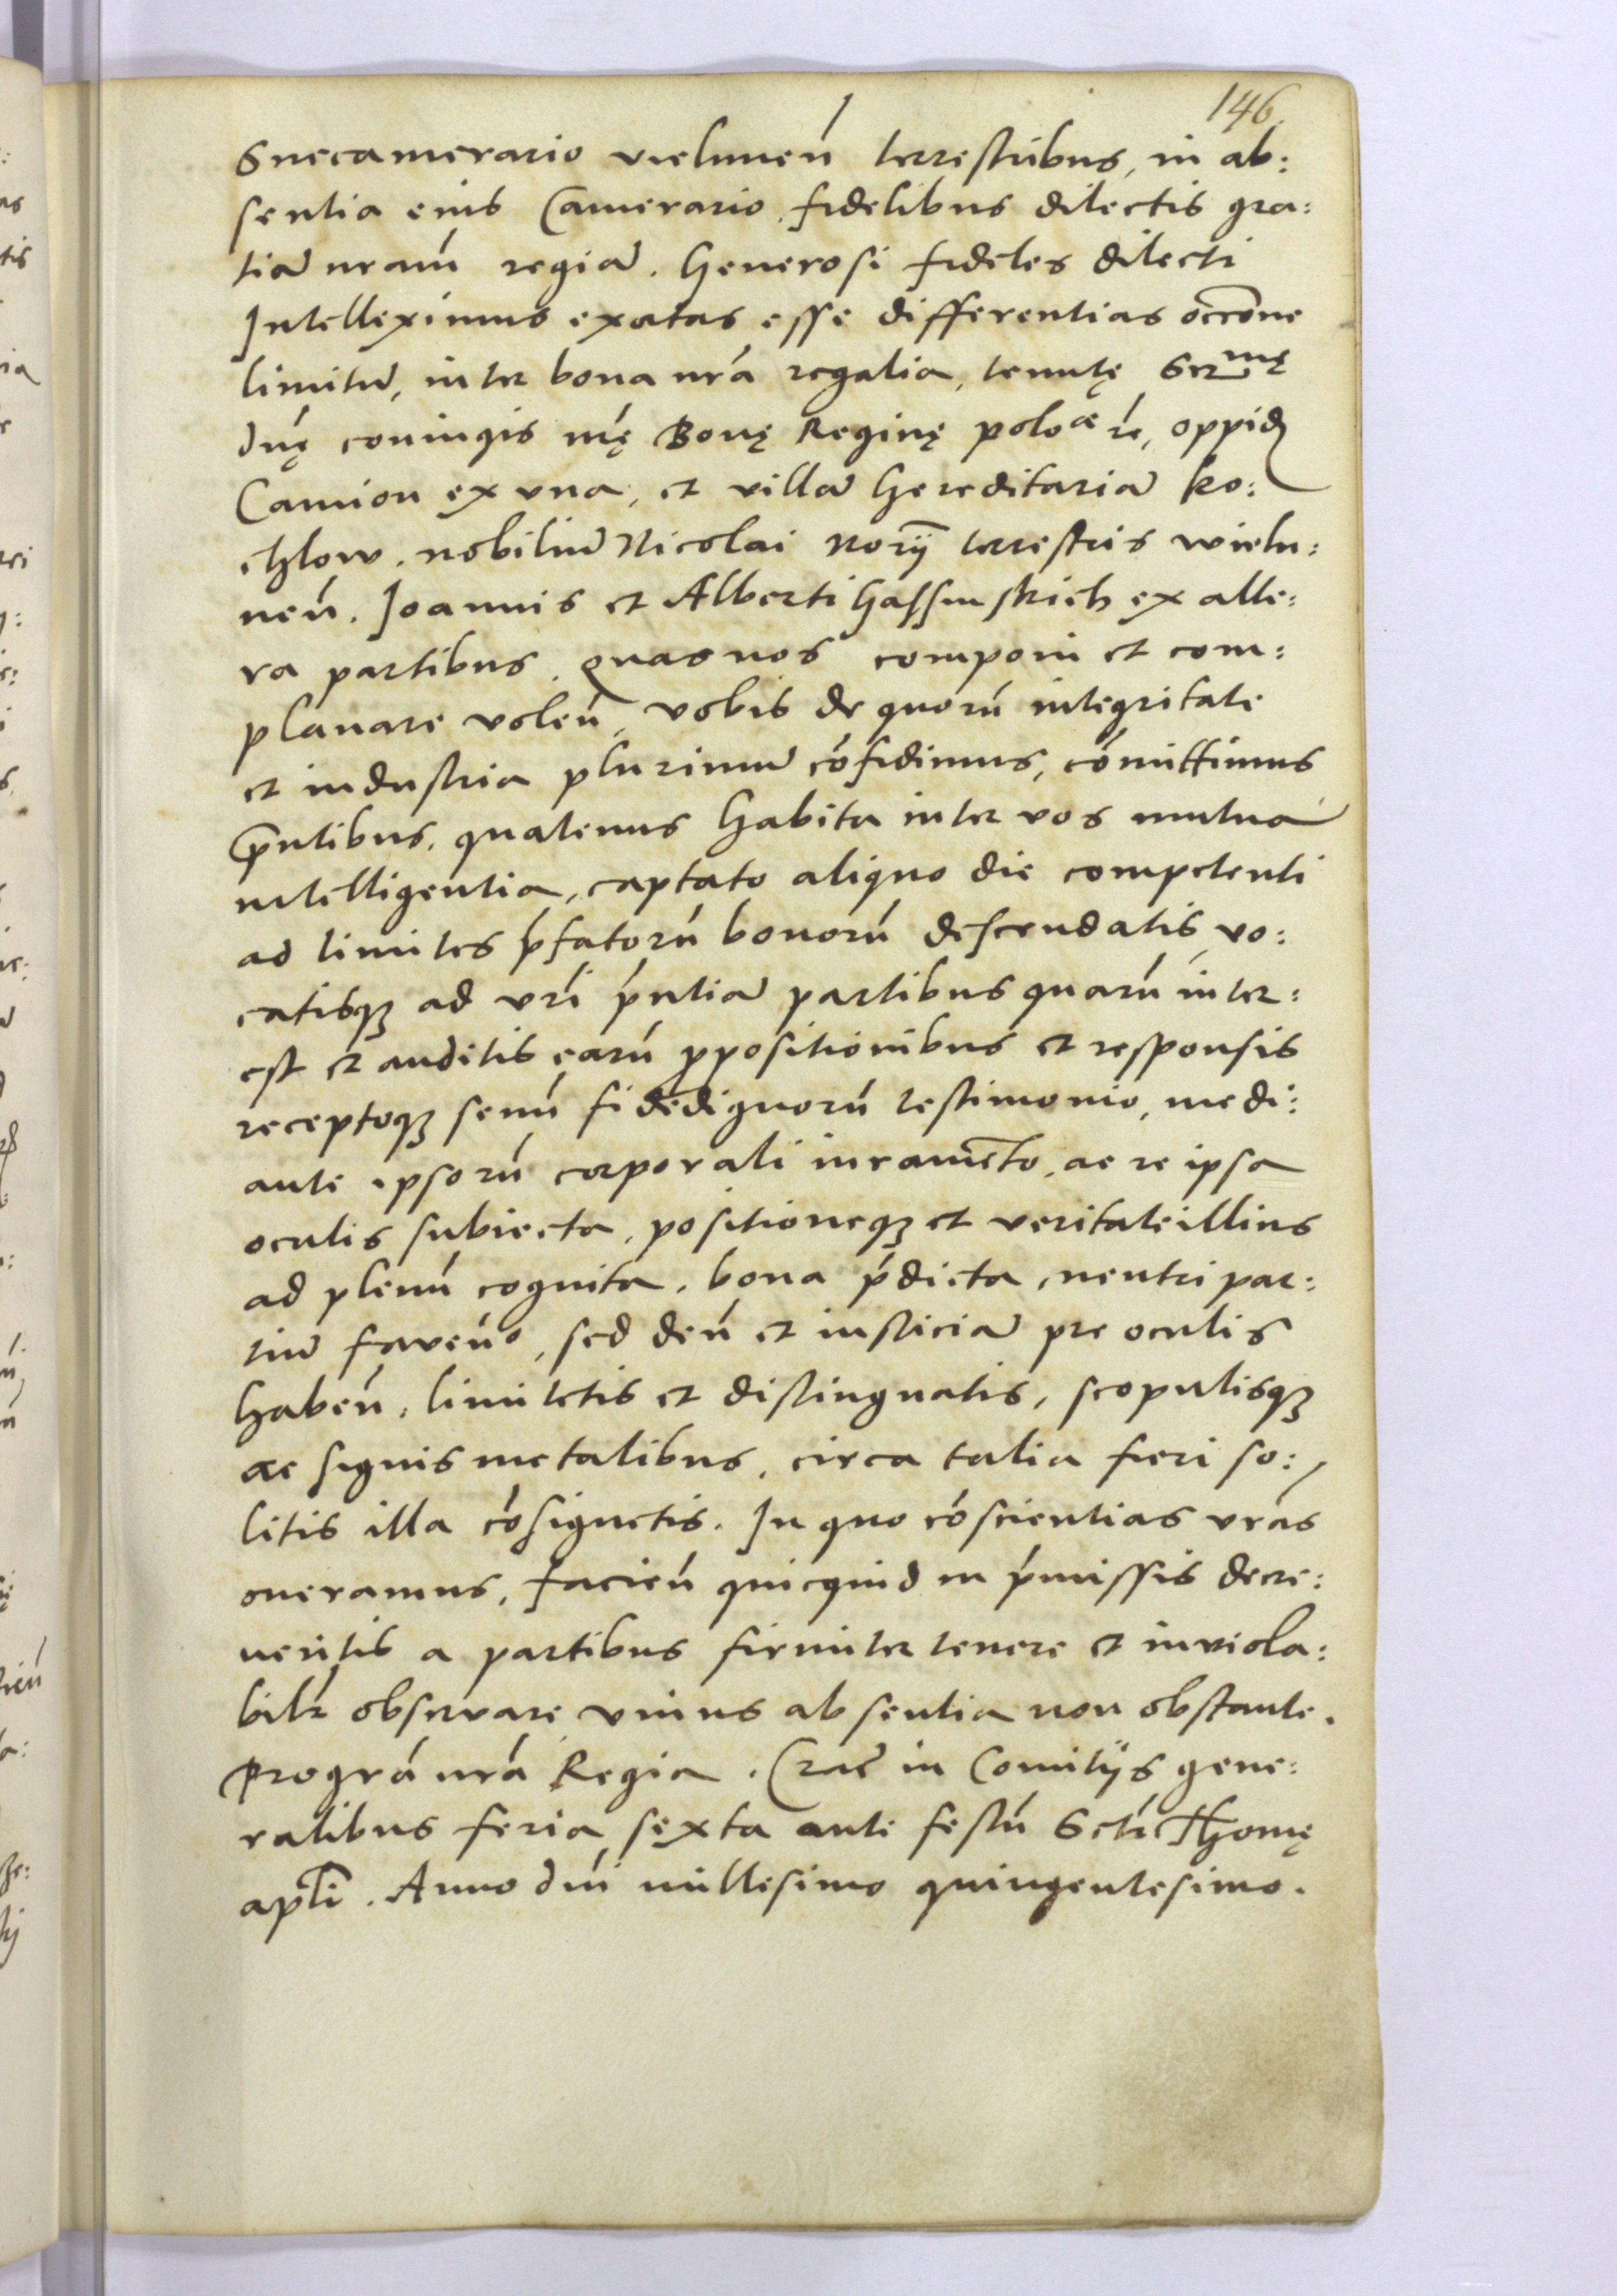 146
Succamerario vielunen̄ terrestribus, in ab:
sentia eius Camerario, fidelibus dilectis gra:
tiā nrām̄ regiā. Generosi fideles dilecti
Intelleximus exortas esse differentias occōne
limitū, inter bona nrā regalia, tenutę Serᵐę
dnę coniugis nrę Bonę Reginę poloᵉ rc, oppidꝫ
Camion ex vna, et villā hereditariā Ko:
chlow, nobiliū Nicolai Norÿ terrestris wielu:
nen̄. Joannis et Alberti Gassinskich ex alte:
ra partibus, quas nos componi et com:
planare volen̄, vobis de quorū integritate
et industria plurimū cōfidimus, cōmittimus
p̄ntibus, quatenus habita inter vos mutua
intelligentia, captato aliquo die competenti
ad limites p̄fatorū bonorū descendatis, vo:
catisqꝫ ad vrī p̄ntiā partibus quarū inter:
est et auditis earū ꝓpositionibus et responsis
receptoqꝫ senū fidedignorū testimonio, medi:
ante ipsorū corporali iuramēto, ac re ipsa
oculis subiecta, positioneqꝫ et veritate illius
ad plenū cognita, bona p̄dicta, neutri par:
tiū faven̄o, sed deū et iusticiā pre oculis
haben̄, limitetis et distinguatis, scopulisqꝫ
ac signis metalibus, circa talia fieri so:
litis illa cōsignetis. In quo cōscientias vrās
oneramus, facien̄ quicquid in p̄missis decre:
veritis a partibus firmiter tenere et inviola:
bilr̄ observare, vnius absentia non obstante.
Pro grā nrā Regia. Crac̄ in Comitÿs gene:
ralibus feria sexta ante festū Scti Thomę
apl̄i. Anno dn̄i millesimo quingentesimo.